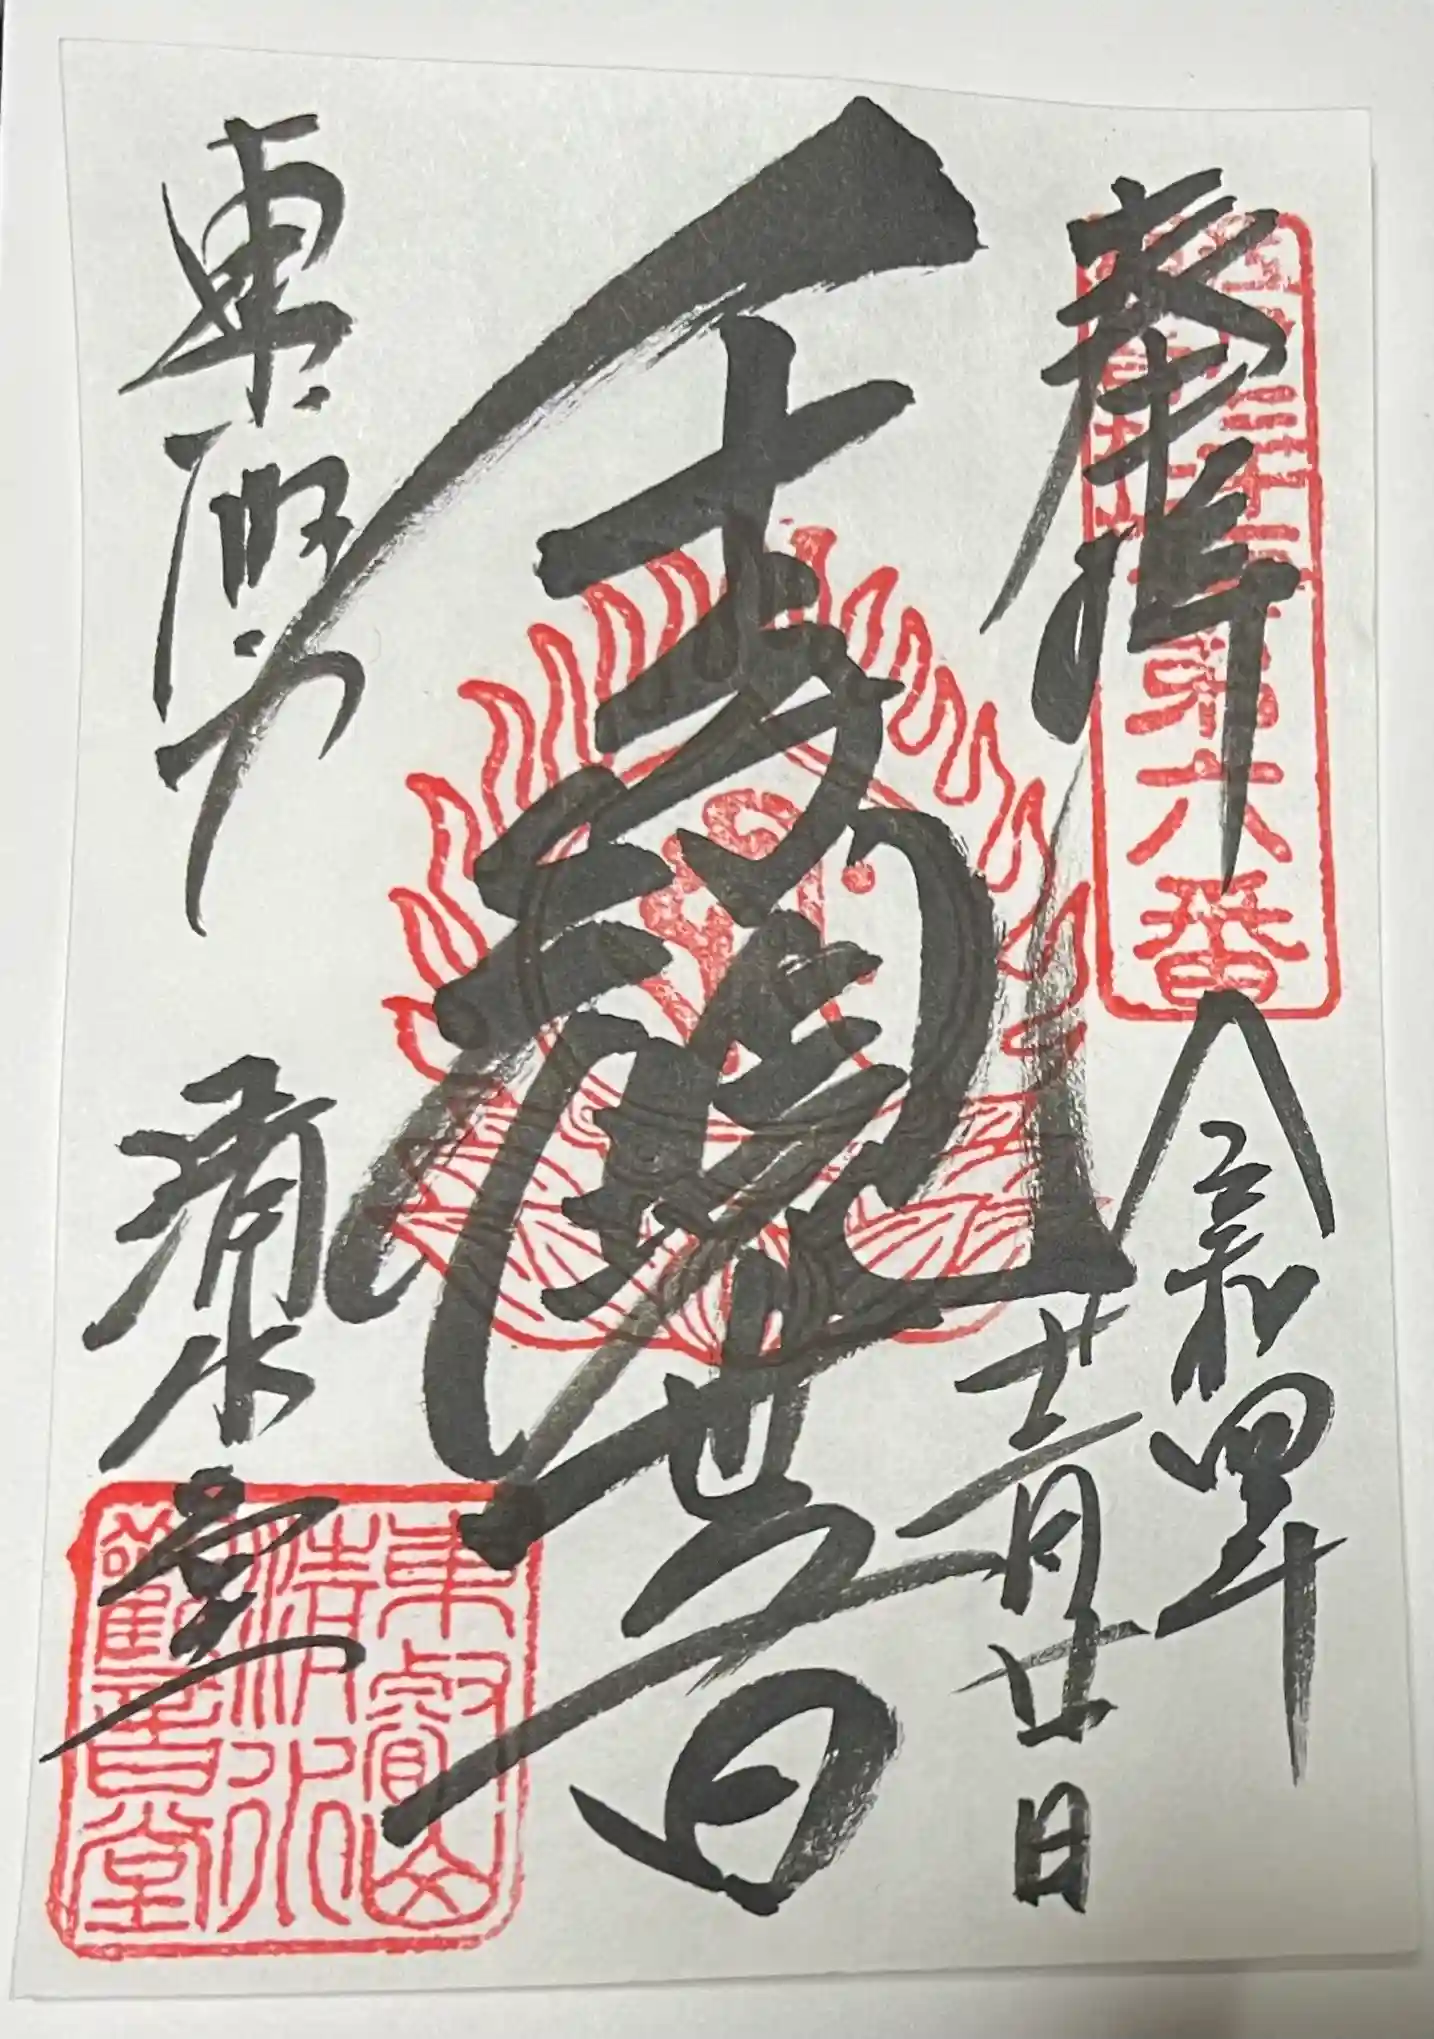 奉拝
第六番
令和四年
十二月廿日
千手観世音
東叡山
清水堂
東叡山
清水
觀音堂